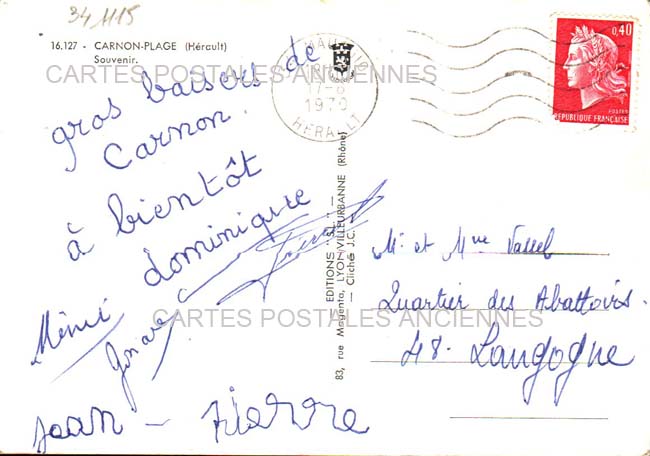 34 1115
16.127 - CARNON-PLAGE (Hérault)
Souvenir.
CARTES POSTALES ANCIENNES
17-8
1970
HERAULT
0,40
POSTES
REPUBLIQUE FRANÇAISE
gros baisers de
Carnon.
à bientôt
dominique
Mémé
Jean - Pierre
EDITIONS "S.L." -
83, rue Magenta, LYON-VILLEURBANNE (Rhône)
— Clichés J.C.
Mr et Mme
Quartier des Abattoirs.
48. Langogne
CARTES POSTALES ANCIENNES